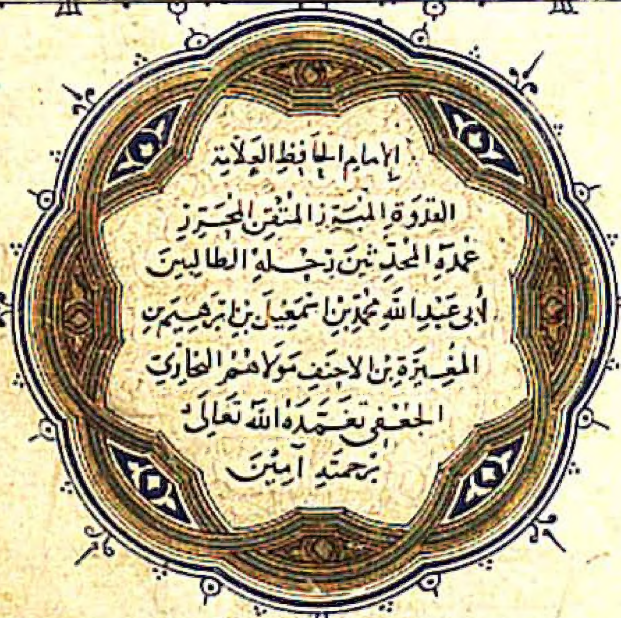 الإمام الحافظ العلامة
القدوة المبرز المتقن المحرر
عمدة المحدثين رحلة الطالبين
أبى عبد الله محمد بن اسمعيل بن ابرهيم بن
المغيرة بن الاحنف مولاهم البخاري
الجعفى تغمده الله تعالى
برحمته آمين